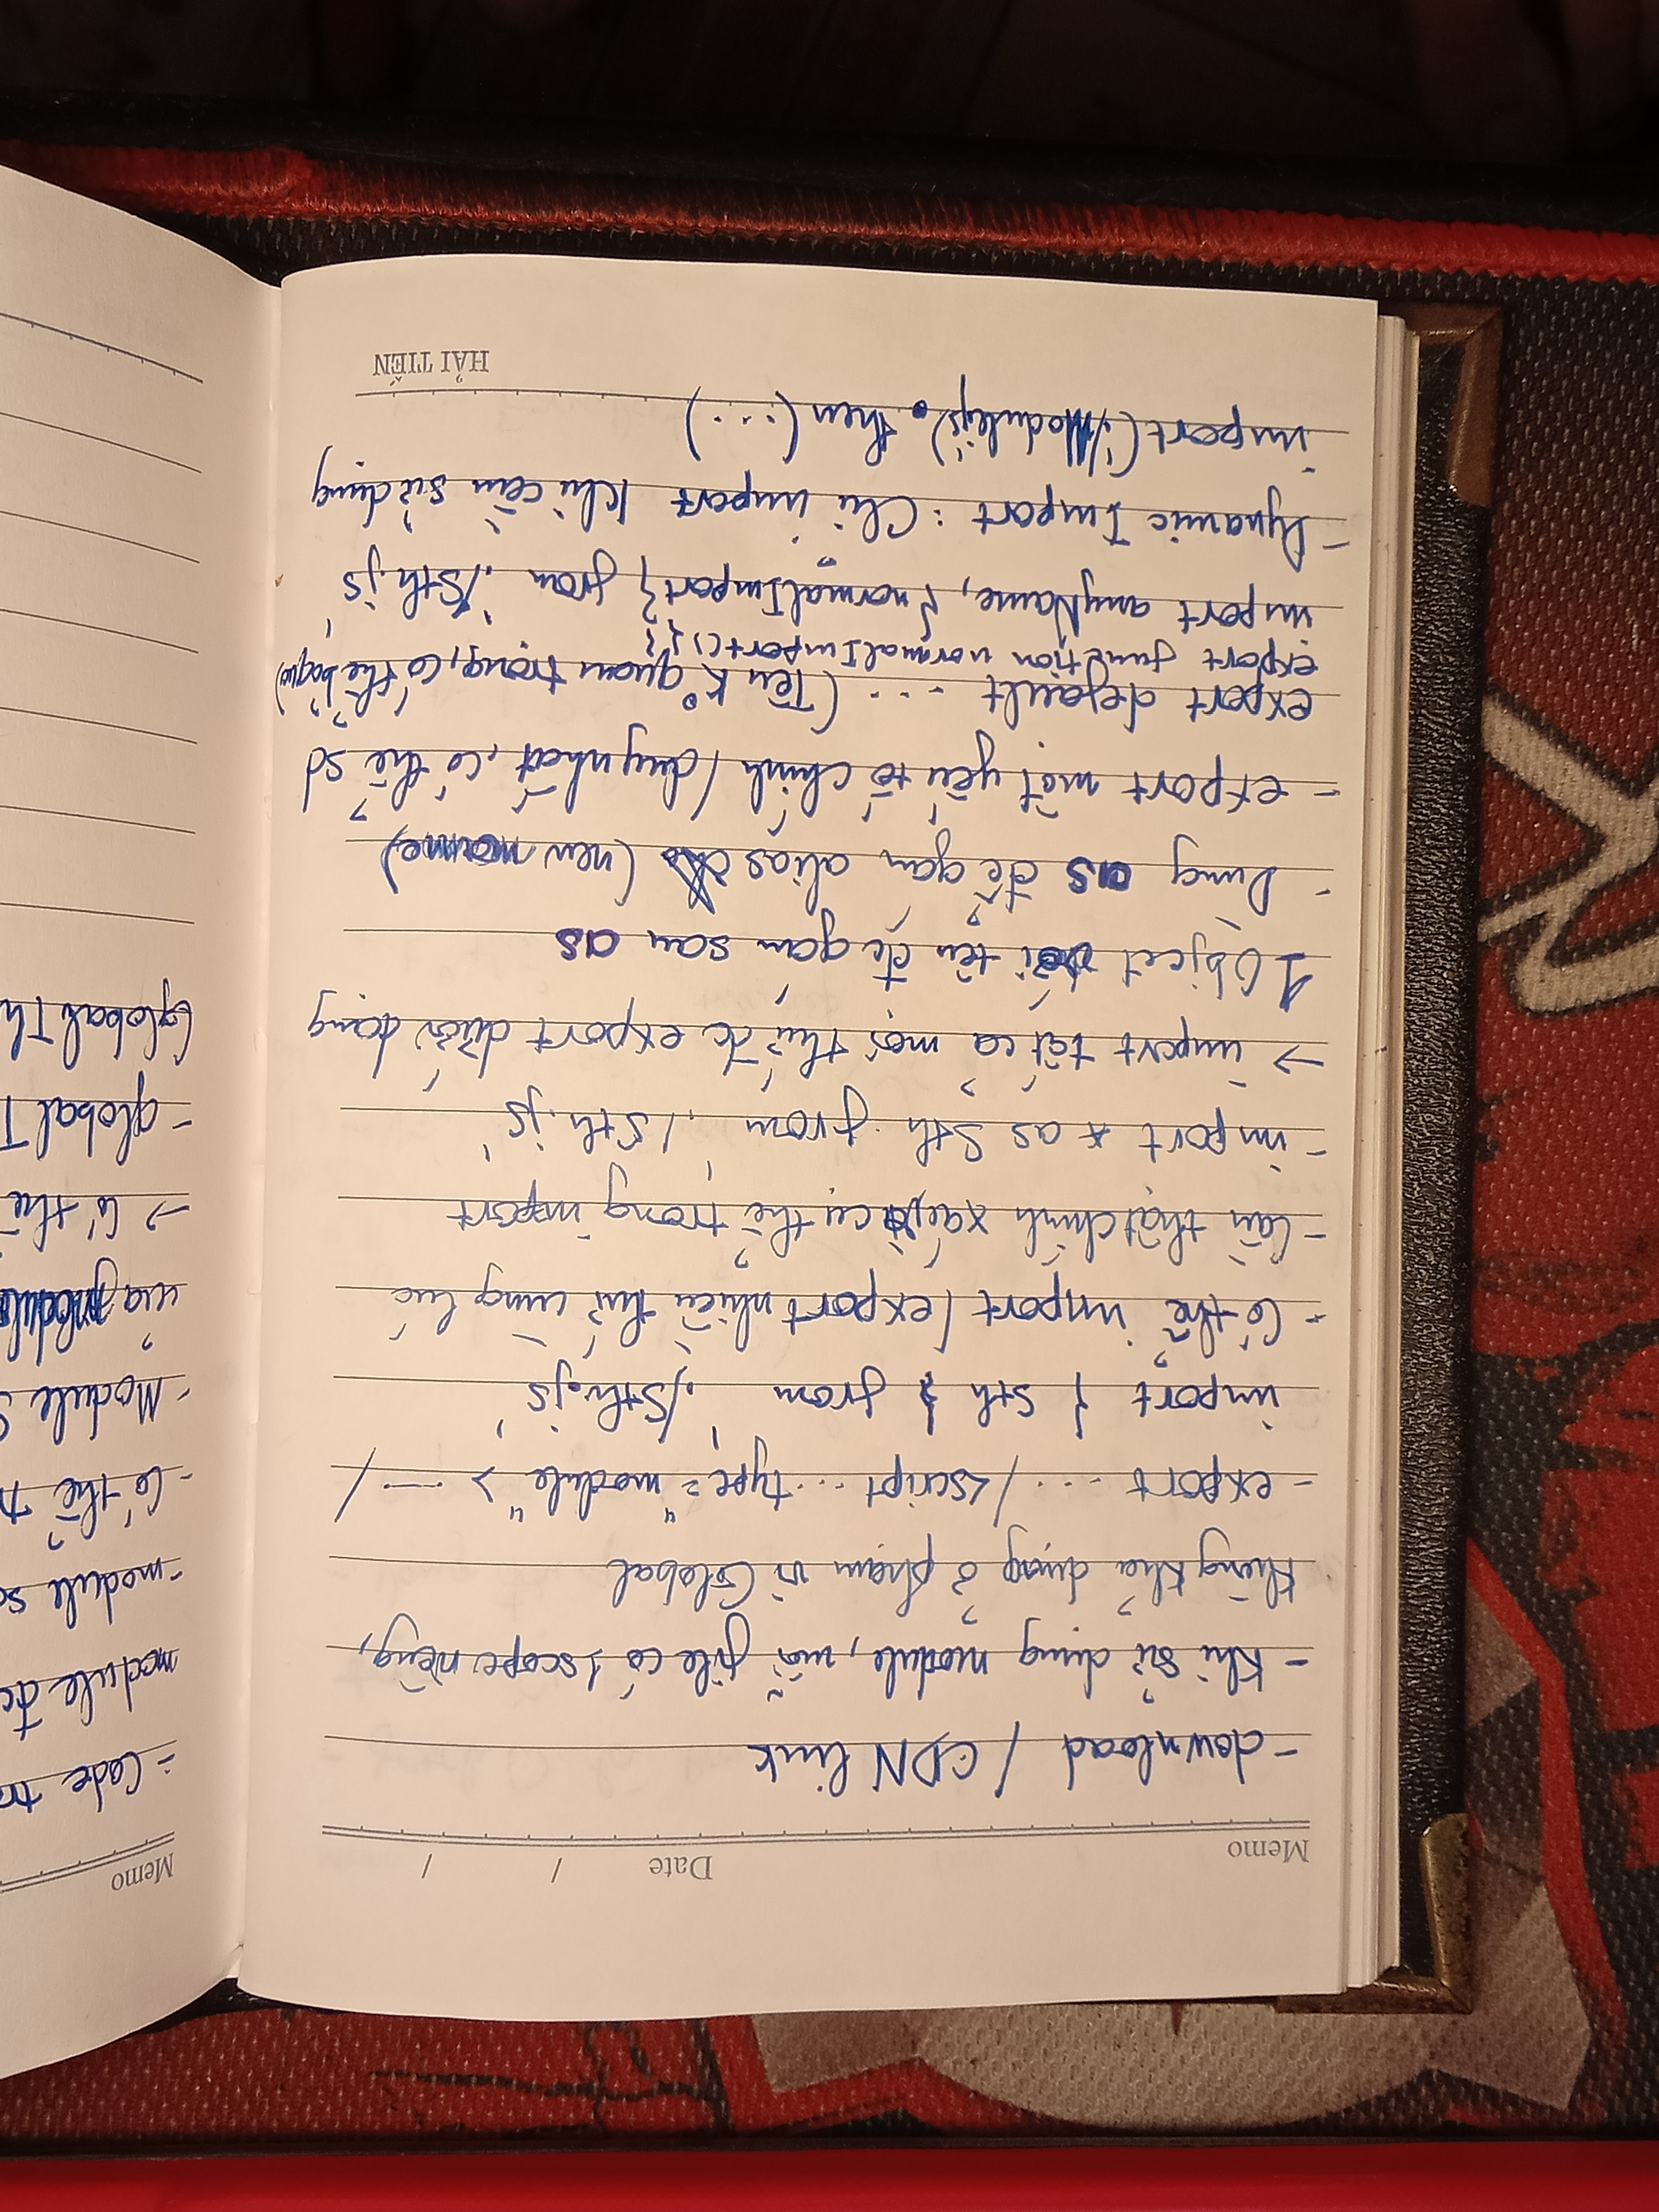 Memo Date / /
- download / CDN link
- Khi sử dụng module, mỗi file có 1 scope riêng,
không khả dụng ở phạm vi Global
- export ... / <script ... type = "module" > — /
import { Sth } from './Sth.js'
- Có thể import / export nhiều thứ cùng lúc
- Cần thật chính xác, cụ thể trong import
- import * as Sth from './Sth.js'
→ import tất cả mọi thứ đc export dưới dạng
1 Object với tên đc gán sau as
- Dùng as để gán alias (new name)
- export một yếu tố chính / duy nhất, có thể sd
export default ... (Tên k° quan trọng, có thể bỏ qua)
export function normalImport() { }
import anyName, {normalImport} from './Sth.js'
- Dynamic Import : Chỉ import khi cần sử dụng
import('./Module.js').then(...)
HẢI TIẾN
Memo
- Code
module đc
- module
- Có thể
- Module
của module
→ Có thể
- global
Global